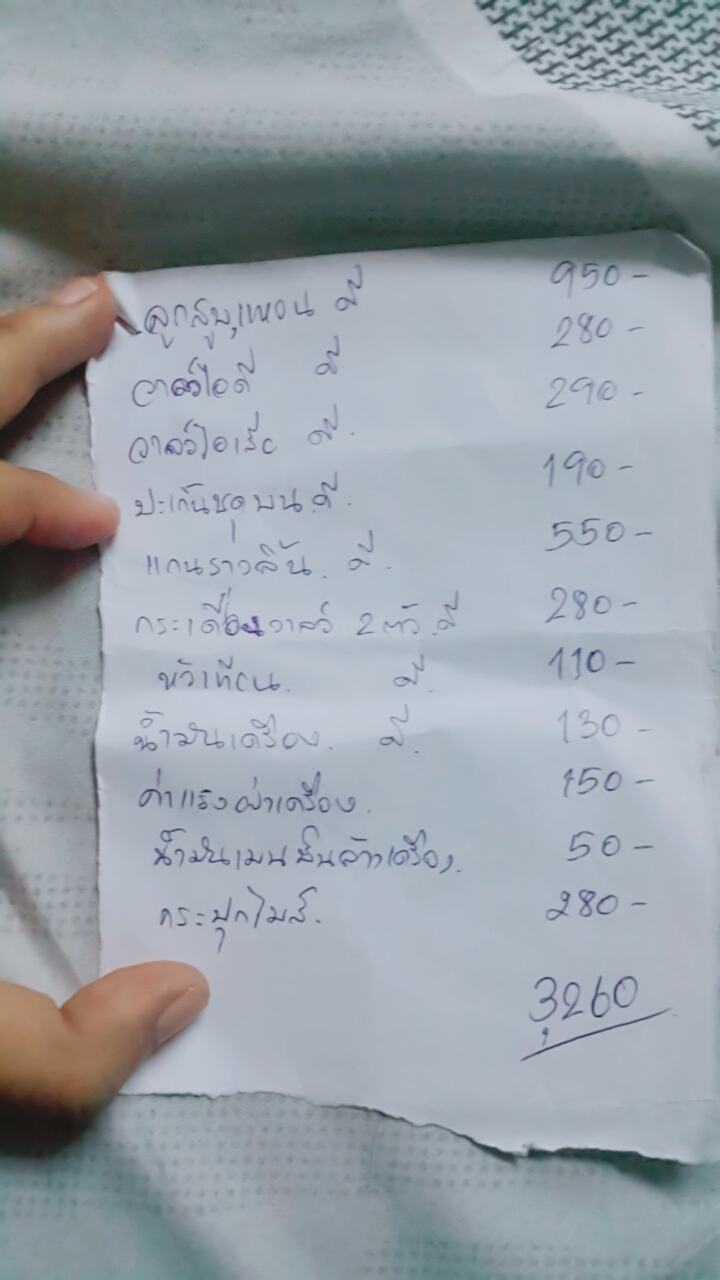 ลูกสูบ,แหวน มี 950-
วาล์วไอดี มี 280-
วาล์วไอเสีย มี. 290-
ปะเก็นชุดบน.มี. 190-
แกนราวลิ้น. มี. 550-
กระเดื่องวาล์ว 2 ตัว.มี 280-
หัวเทียน. มี. 110-
น้ำมันเครื่อง. มี. 130-
ค่าแรงผ่าเครื่อง. 150-
น้ำมันเบนซินล้างเครื่อง. 50-
กระปุกไมล์. 280-
3,260